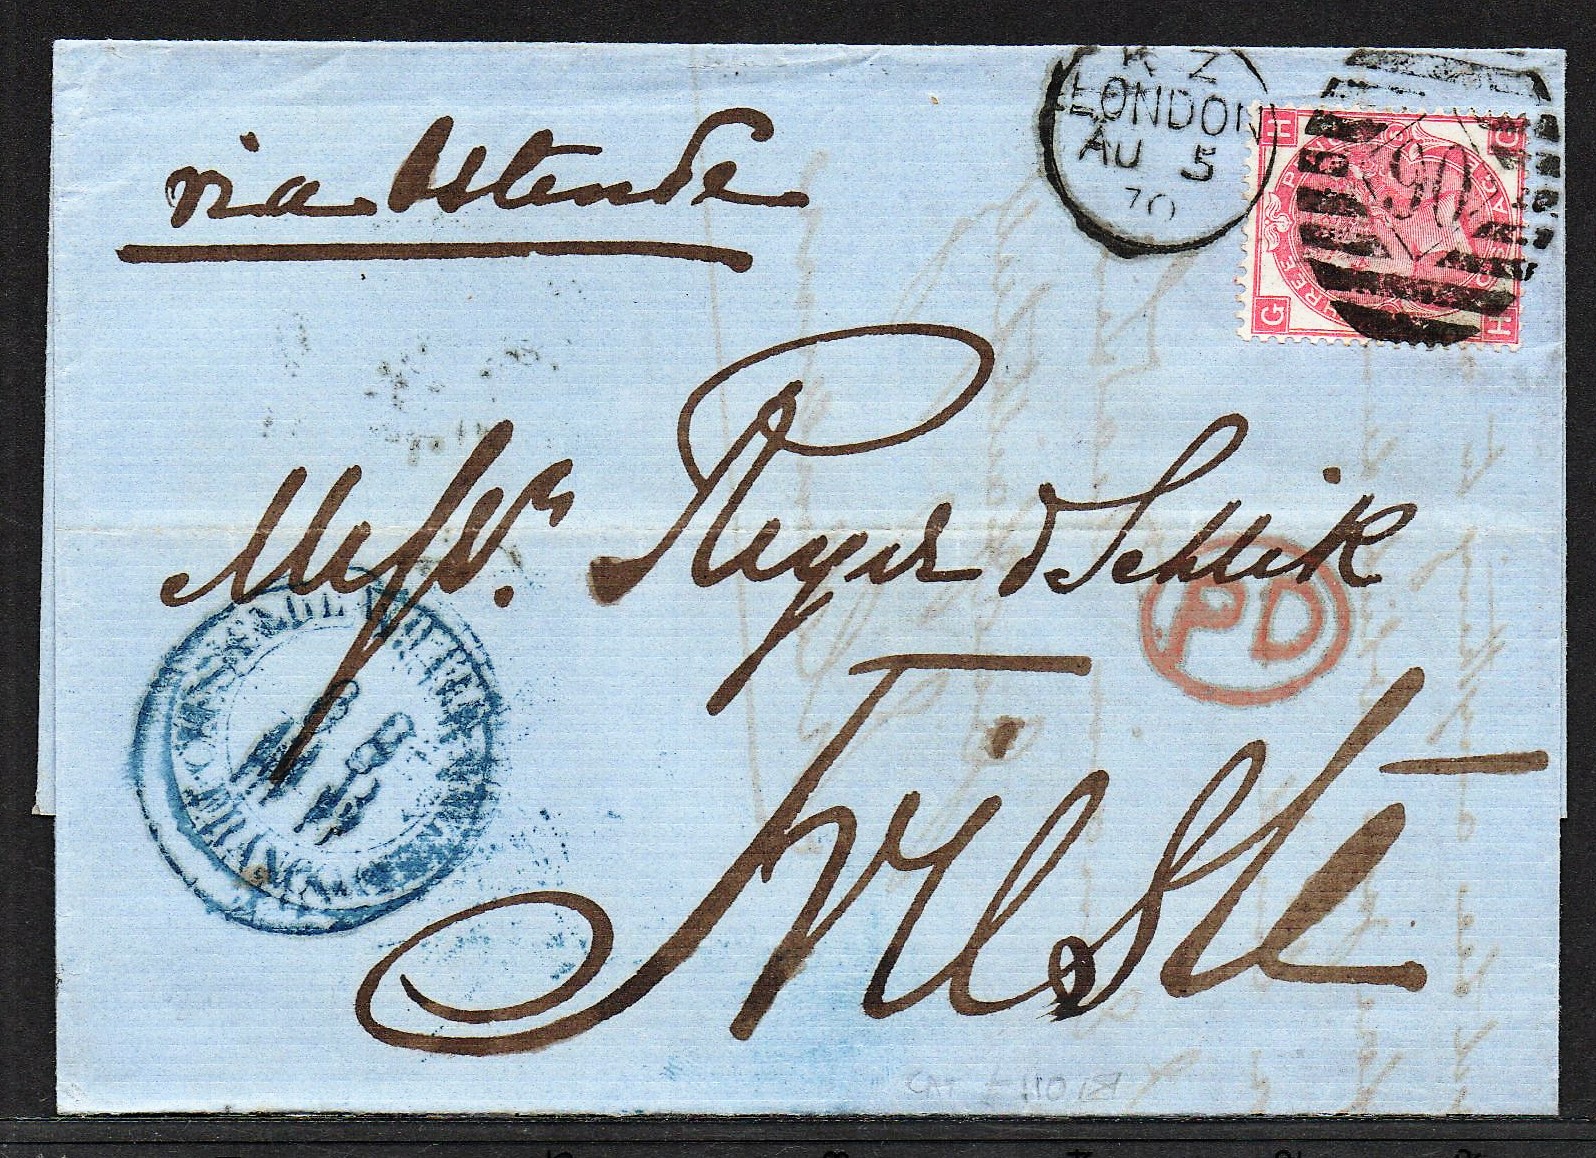 via Ostende
K Z
LONDON
AU 5
70
90
H G
THREE PENCE POSTAGE
G H
Messrs. Reyer & Schlik
PD
Trieste